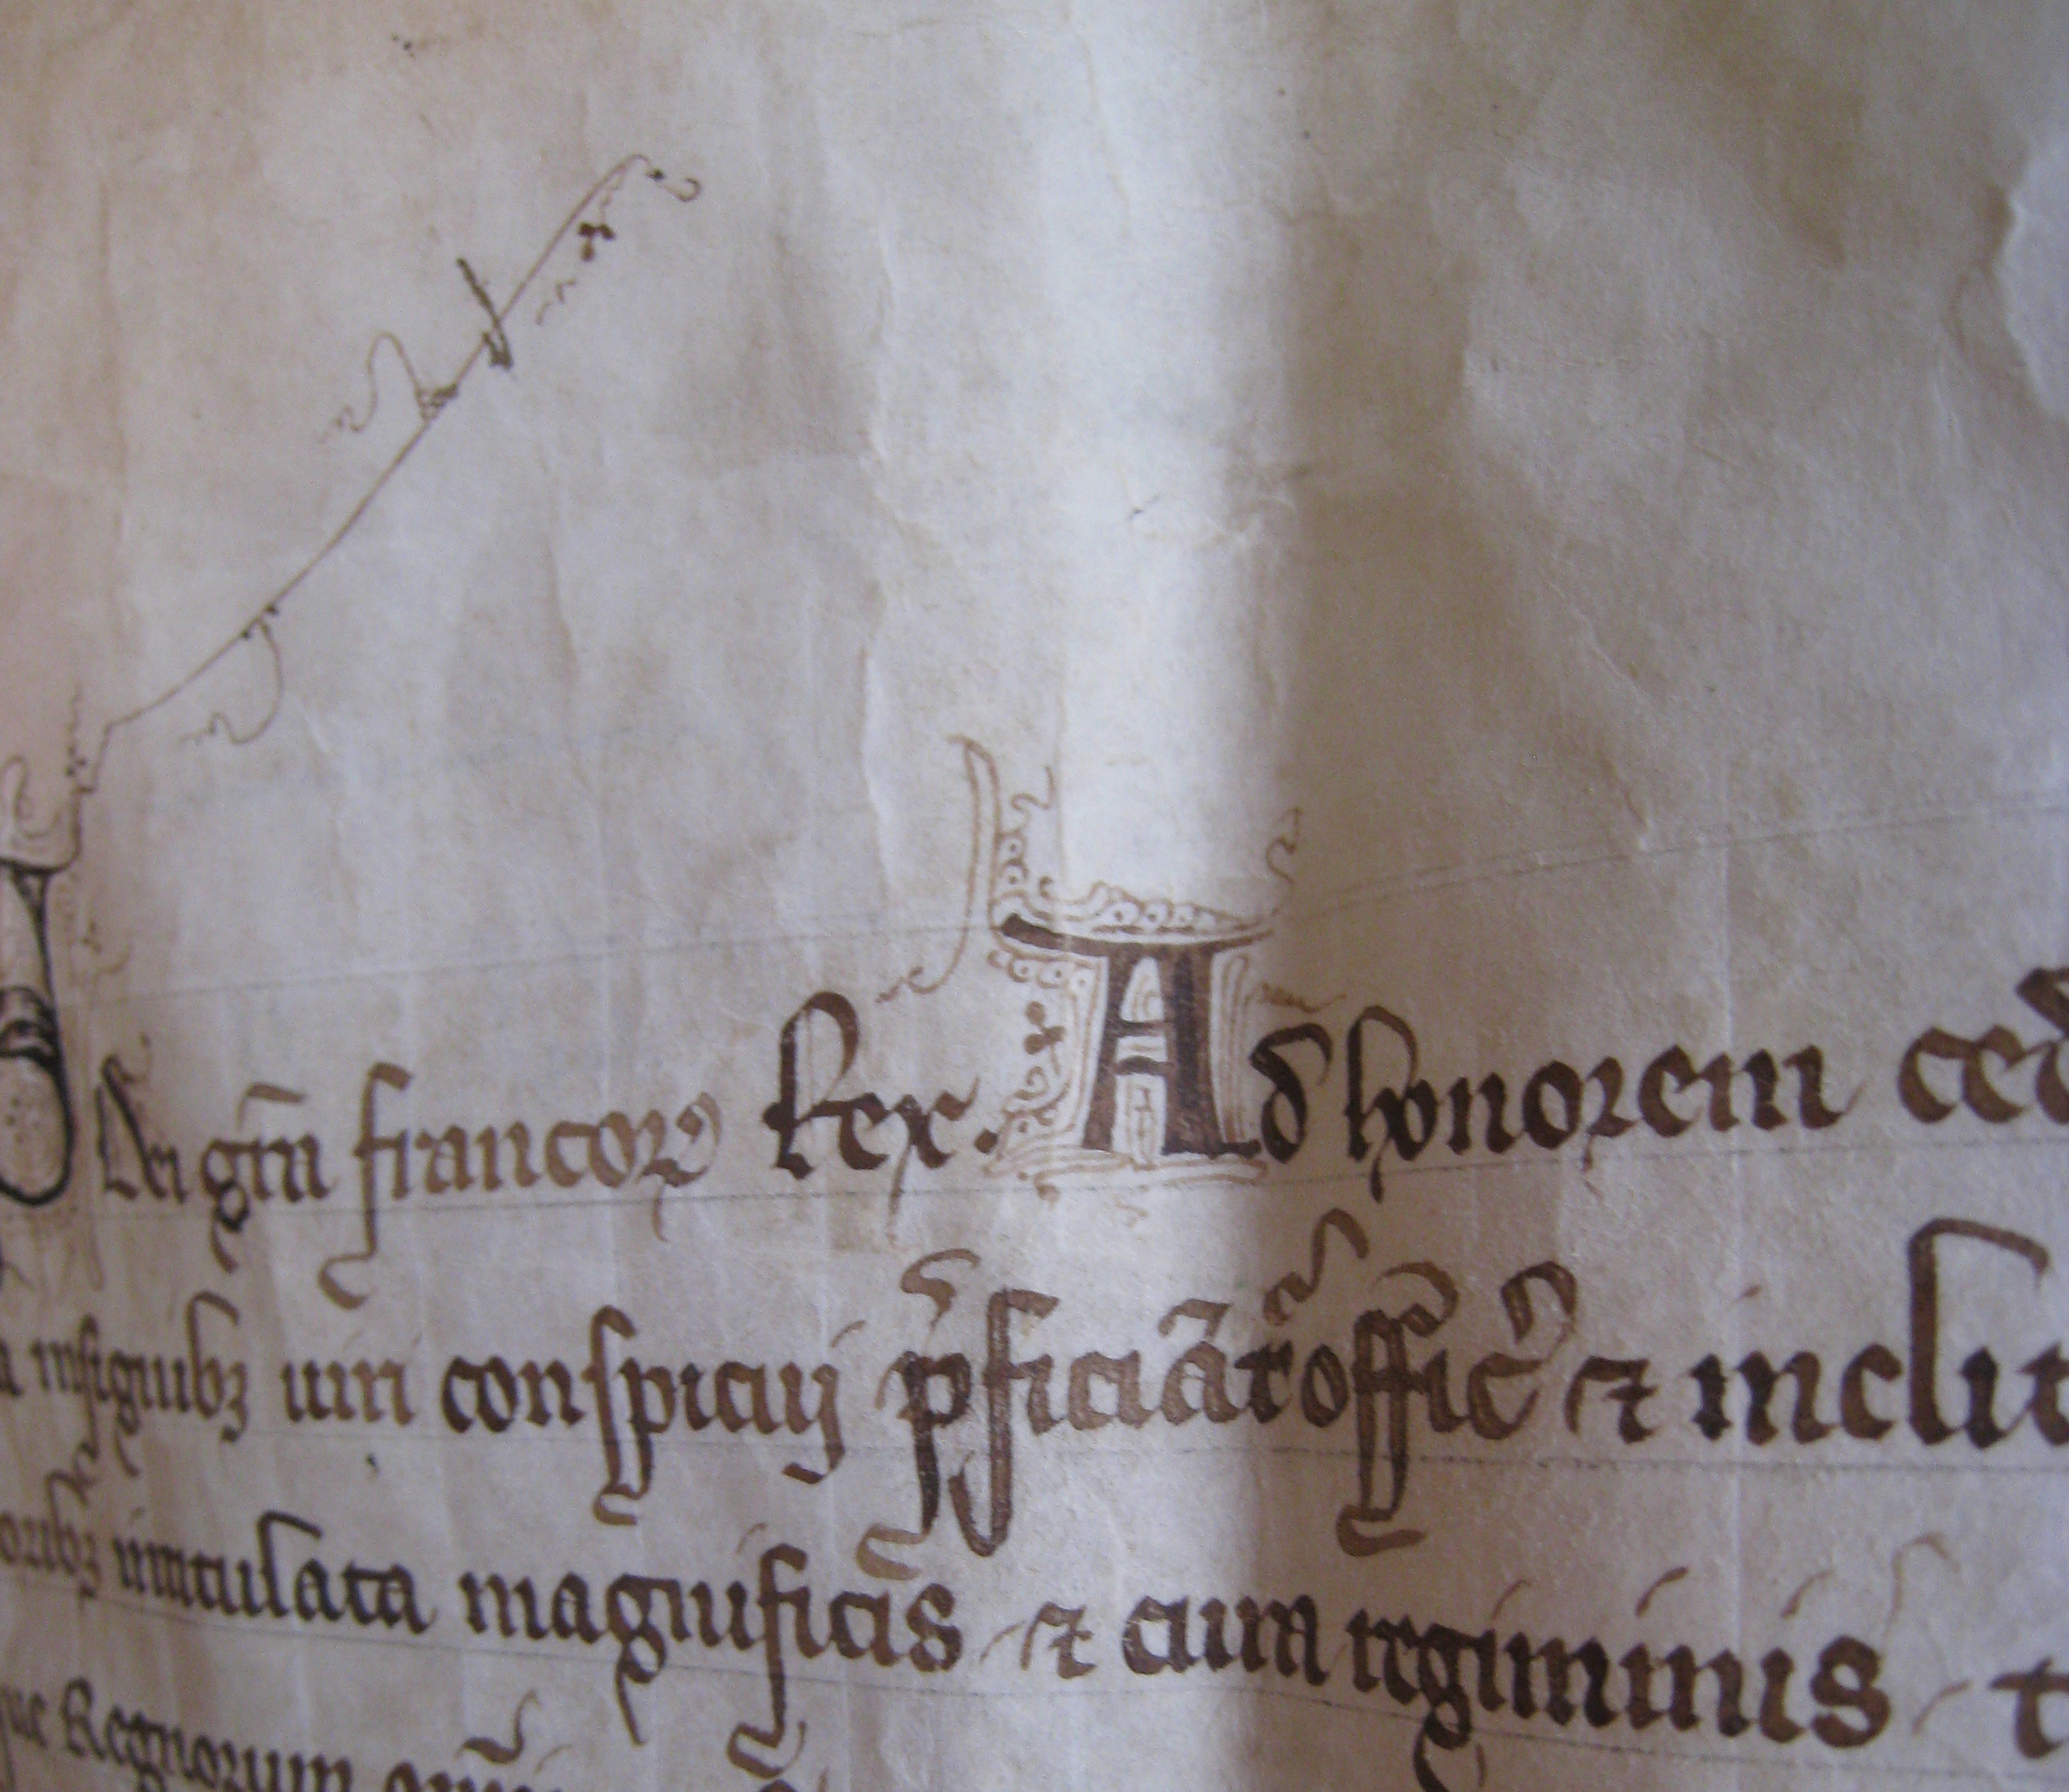 Dei gr̄a francoꝝ Rex. Ad honorem ced
insignibꝫ uiri conspicuij p̄ficiāt᷑ offic̄ ⁊ inclit
oribꝫ intitulata magnificis ⁊ cum regiminis t
que Regnorum